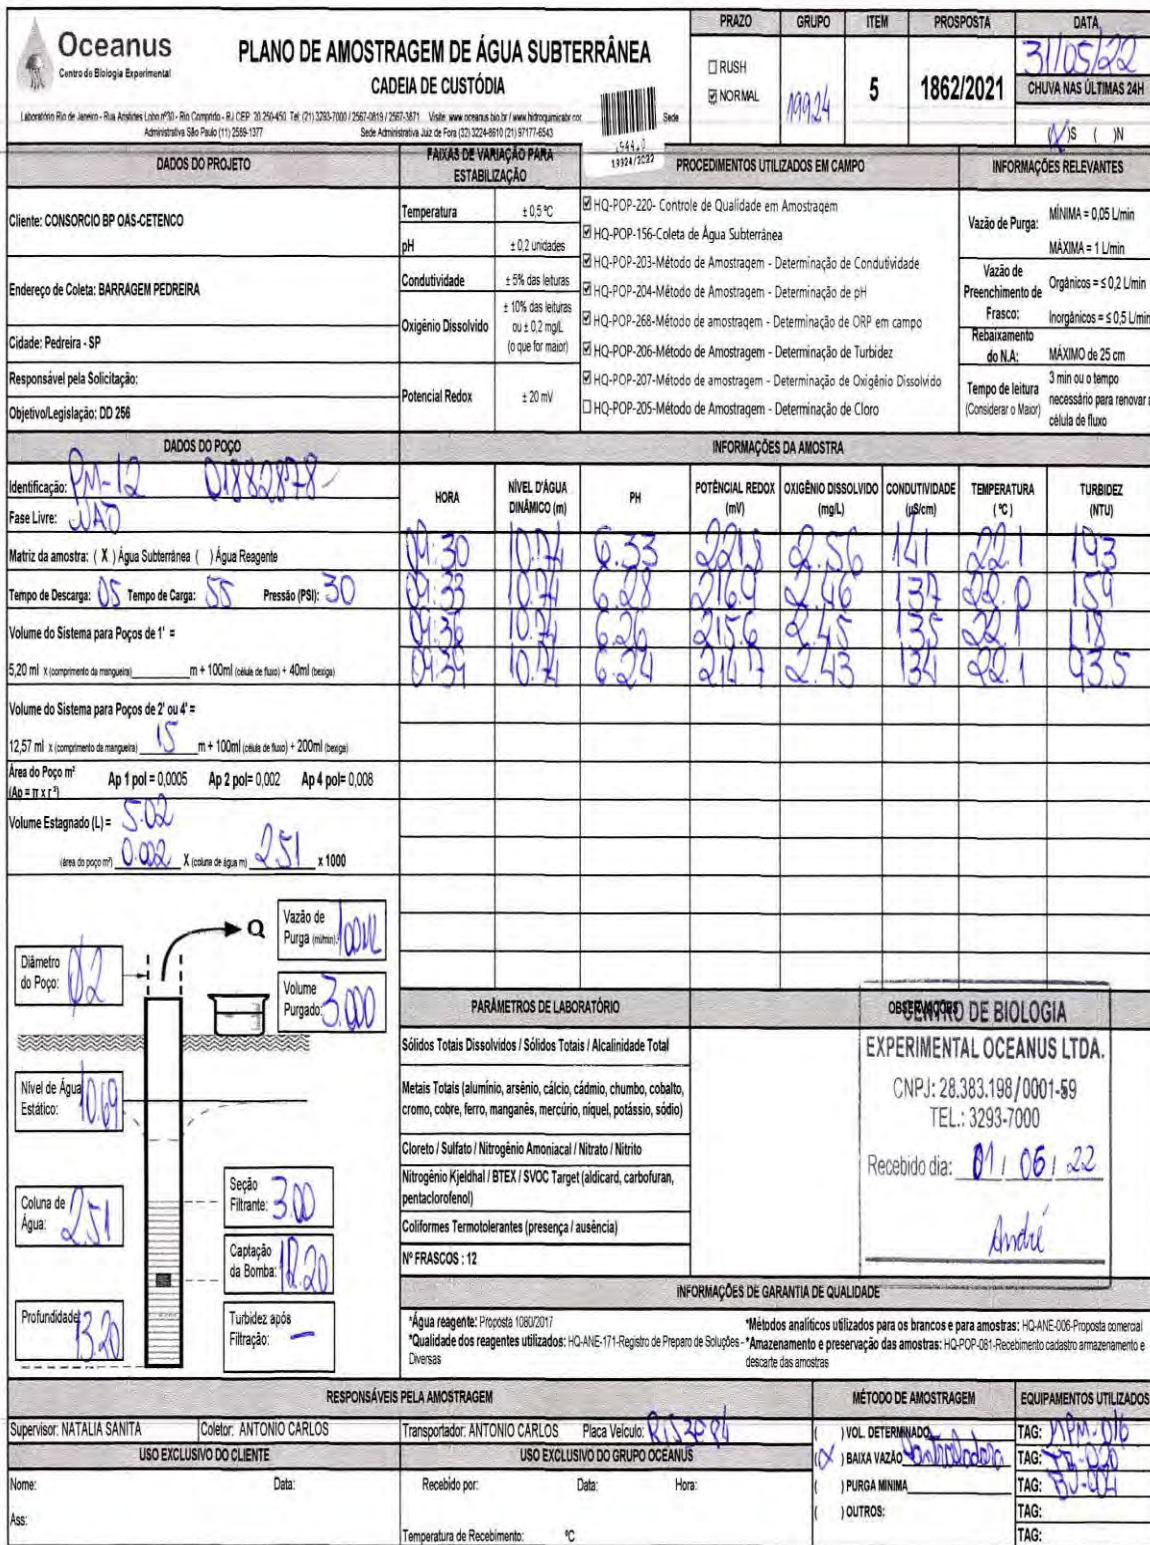 Oceanus
Centro de Biologia Experimental
PLANO DE AMOSTRAGEM DE ÁGUA SUBTERRÂNEA
CADEIA DE CUSTÓDIA
Laboratório Rio de Janeiro - Rua Aristides Lobo nº30 - Rio Comprido - RJ CEP. 20.250-450. Tel: (21) 3293-7000 / 2567-0819 / 2567-3871 Visite: www.oceanus.bio.br / www.hidroquimicabr.com Sede
Administrativa São Paulo (11) 2589-1377 Sede Administrativa Juiz de Fora (32) 3224-8610 (21) 97177-6543
19924/2022
PRAZO GRUPO ITEM PROSPOSTA DATA
☐ RUSH
☑ NORMAL
19924 5 1862/2021 31/05/22
CHUVA NAS ÚLTIMAS 24H
(X)S ( )N
DADOS DO PROJETO
Cliente: CONSORCIO BP OAS-CETENCO
Endereço de Coleta: BARRAGEM PEDREIRA
Cidade: Pedreira - SP
Responsável pela Solicitação:
Objetivo/Legislação: DD 256
FAIXAS DE VARIAÇÃO PARA ESTABILIZAÇÃO
Temperatura ± 0,5 ºC
pH ± 0,2 unidades
Condutividade ± 5% das leituras
Oxigênio Dissolvido ± 10% das leituras ou ± 0,2 mg/L (o que for maior)
Potencial Redox ± 20 mV
PROCEDIMENTOS UTILIZADOS EM CAMPO
☑ HQ-POP-220- Controle de Qualidade em Amostragem
☑ HQ-POP-156-Coleta de Água Subterrânea
☑ HQ-POP-203-Método de Amostragem - Determinação de Condutividade
☑ HQ-POP-204-Método de Amostragem - Determinação de pH
☑ HQ-POP-268-Método de amostragem - Determinação de ORP em campo
☑ HQ-POP-206-Método de Amostragem - Determinação de Turbidez
☑ HQ-POP-207-Método de amostragem - Determinação de Oxigênio Dissolvido
☐ HQ-POP-205-Método de Amostragem - Determinação de Cloro
INFORMAÇÕES RELEVANTES
Vazão de Purga: MÍNIMA = 0,05 L/min
MÁXIMA = 1 L/min
Vazão de Preenchimento de Frasco: Orgânicos = ≤ 0,2 L/min
Inorgânicos = ≤ 0,5 L/min
Rebaixamento do N.A: MÁXIMO de 25 cm
Tempo de leitura (Considerar o Maior) 3 min ou o tempo necessário para renovar a célula de fluxo
DADOS DO POÇO
Identificação: PM-12 01882878
Fase Livre: NAO
Matriz da amostra: ( X ) Água Subterrânea ( ) Água Reagente
Tempo de Descarga: 05 Tempo de Carga: 55 Pressão (PSI): 30
Volume do Sistema para Poços de 1' =
5,20 ml x (comprimento da mangueira) m + 100ml (célula de fluxo) + 40ml (bexiga)
Volume do Sistema para Poços de 2' ou 4' =
12,57 ml x (comprimento da mangueira) 15 m + 100ml (célula de fluxo) + 200ml (bexiga)
Área do Poço m² (Ap = π x r²) Ap 1 pol = 0,0005 Ap 2 pol= 0,002 Ap 4 pol= 0,008
Volume Estagnado (L) = 5.02
(área do poço m²) 0.002 X (coluna de água m) 2.51 x 1000
INFORMAÇÕES DA AMOSTRA
HORA NÍVEL D'ÁGUA DINÂMICO (m) PH POTÊNCIAL REDOX (mV) OXIGÊNIO DISSOLVIDO (mg/L) CONDUTIVIDADE (µS/cm) TEMPERATURA (ºC) TURBIDEZ (NTU)
09:30 10.71 6.33 221.8 2.56 141 22.1 193
09:33 10.71 6.28 216.9 2.46 137 22.0 159
09:36 10.71 6.26 215.6 2.45 135 22.1 118
09:39 10.71 6.24 214.7 2.43 134 22.1 93.5
Q
Vazão de Purga (ml/min):
Volume Purgado: 3.000
Diâmetro do Poço: 02
Nível de Água Estático: 10.69
Coluna de Água: 2.51
Seção Filtrante: 3.00
Captação da Bomba: 12.20
Profundidade: 13.20
Turbidez após Filtração: —
PARÂMETROS DE LABORATÓRIO
Sólidos Totais Dissolvidos / Sólidos Totais / Alcalinidade Total
Metais Totais (alumínio, arsênio, cálcio, cádmio, chumbo, cobalto, cromo, cobre, ferro, manganês, mercúrio, níquel, potássio, sódio)
Cloreto / Sulfato / Nitrogênio Amoniacal / Nitrato / Nitrito
Nitrogênio Kjeldhal / BTEX / SVOC Target (aldicard, carbofuran, pentaclorofenol)
Coliformes Termotolerantes (presença / ausência)
Nº FRASCOS : 12
OBSERVAÇÕES
CENTRO DE BIOLOGIA
EXPERIMENTAL OCEANUS LTDA.
CNPJ: 28.383.198/0001-59
TEL.: 3293-7000
Recebido dia: 01 / 06 / 22
André
INFORMAÇÕES DE GARANTIA DE QUALIDADE
*Água reagente: Proposta 1080/2017
*Qualidade dos reagentes utilizados: HQ-ANE-171-Registro de Preparo de Soluções - Diversas
*Métodos analíticos utilizados para os brancos e para amostras: HQ-ANE-006-Proposta comercial
*Amazenamento e preservação das amostras: HQ-POP-081-Recebimento cadastro armazenamento e descarte das amostras
RESPONSÁVEIS PELA AMOSTRAGEM
Supervisor: NATALIA SANITA Coletor: ANTONIO CARLOS Transportador: ANTONIO CARLOS Placa Veículo:
USO EXCLUSIVO DO CLIENTE
Nome: Data:
Ass:
USO EXCLUSIVO DO GRUPO OCEANUS
Recebido por: Data: Hora:
Temperatura de Recebimento: ºC
MÉTODO DE AMOSTRAGEM
( ) VOL. DETERMINADO
(X) BAIXA VAZÃO Controladora
( ) PURGA MINIMA
( ) OUTROS:
EQUIPAMENTOS UTILIZADOS
TAG: MPM-016
TAG:
TAG:
TAG:
TAG: